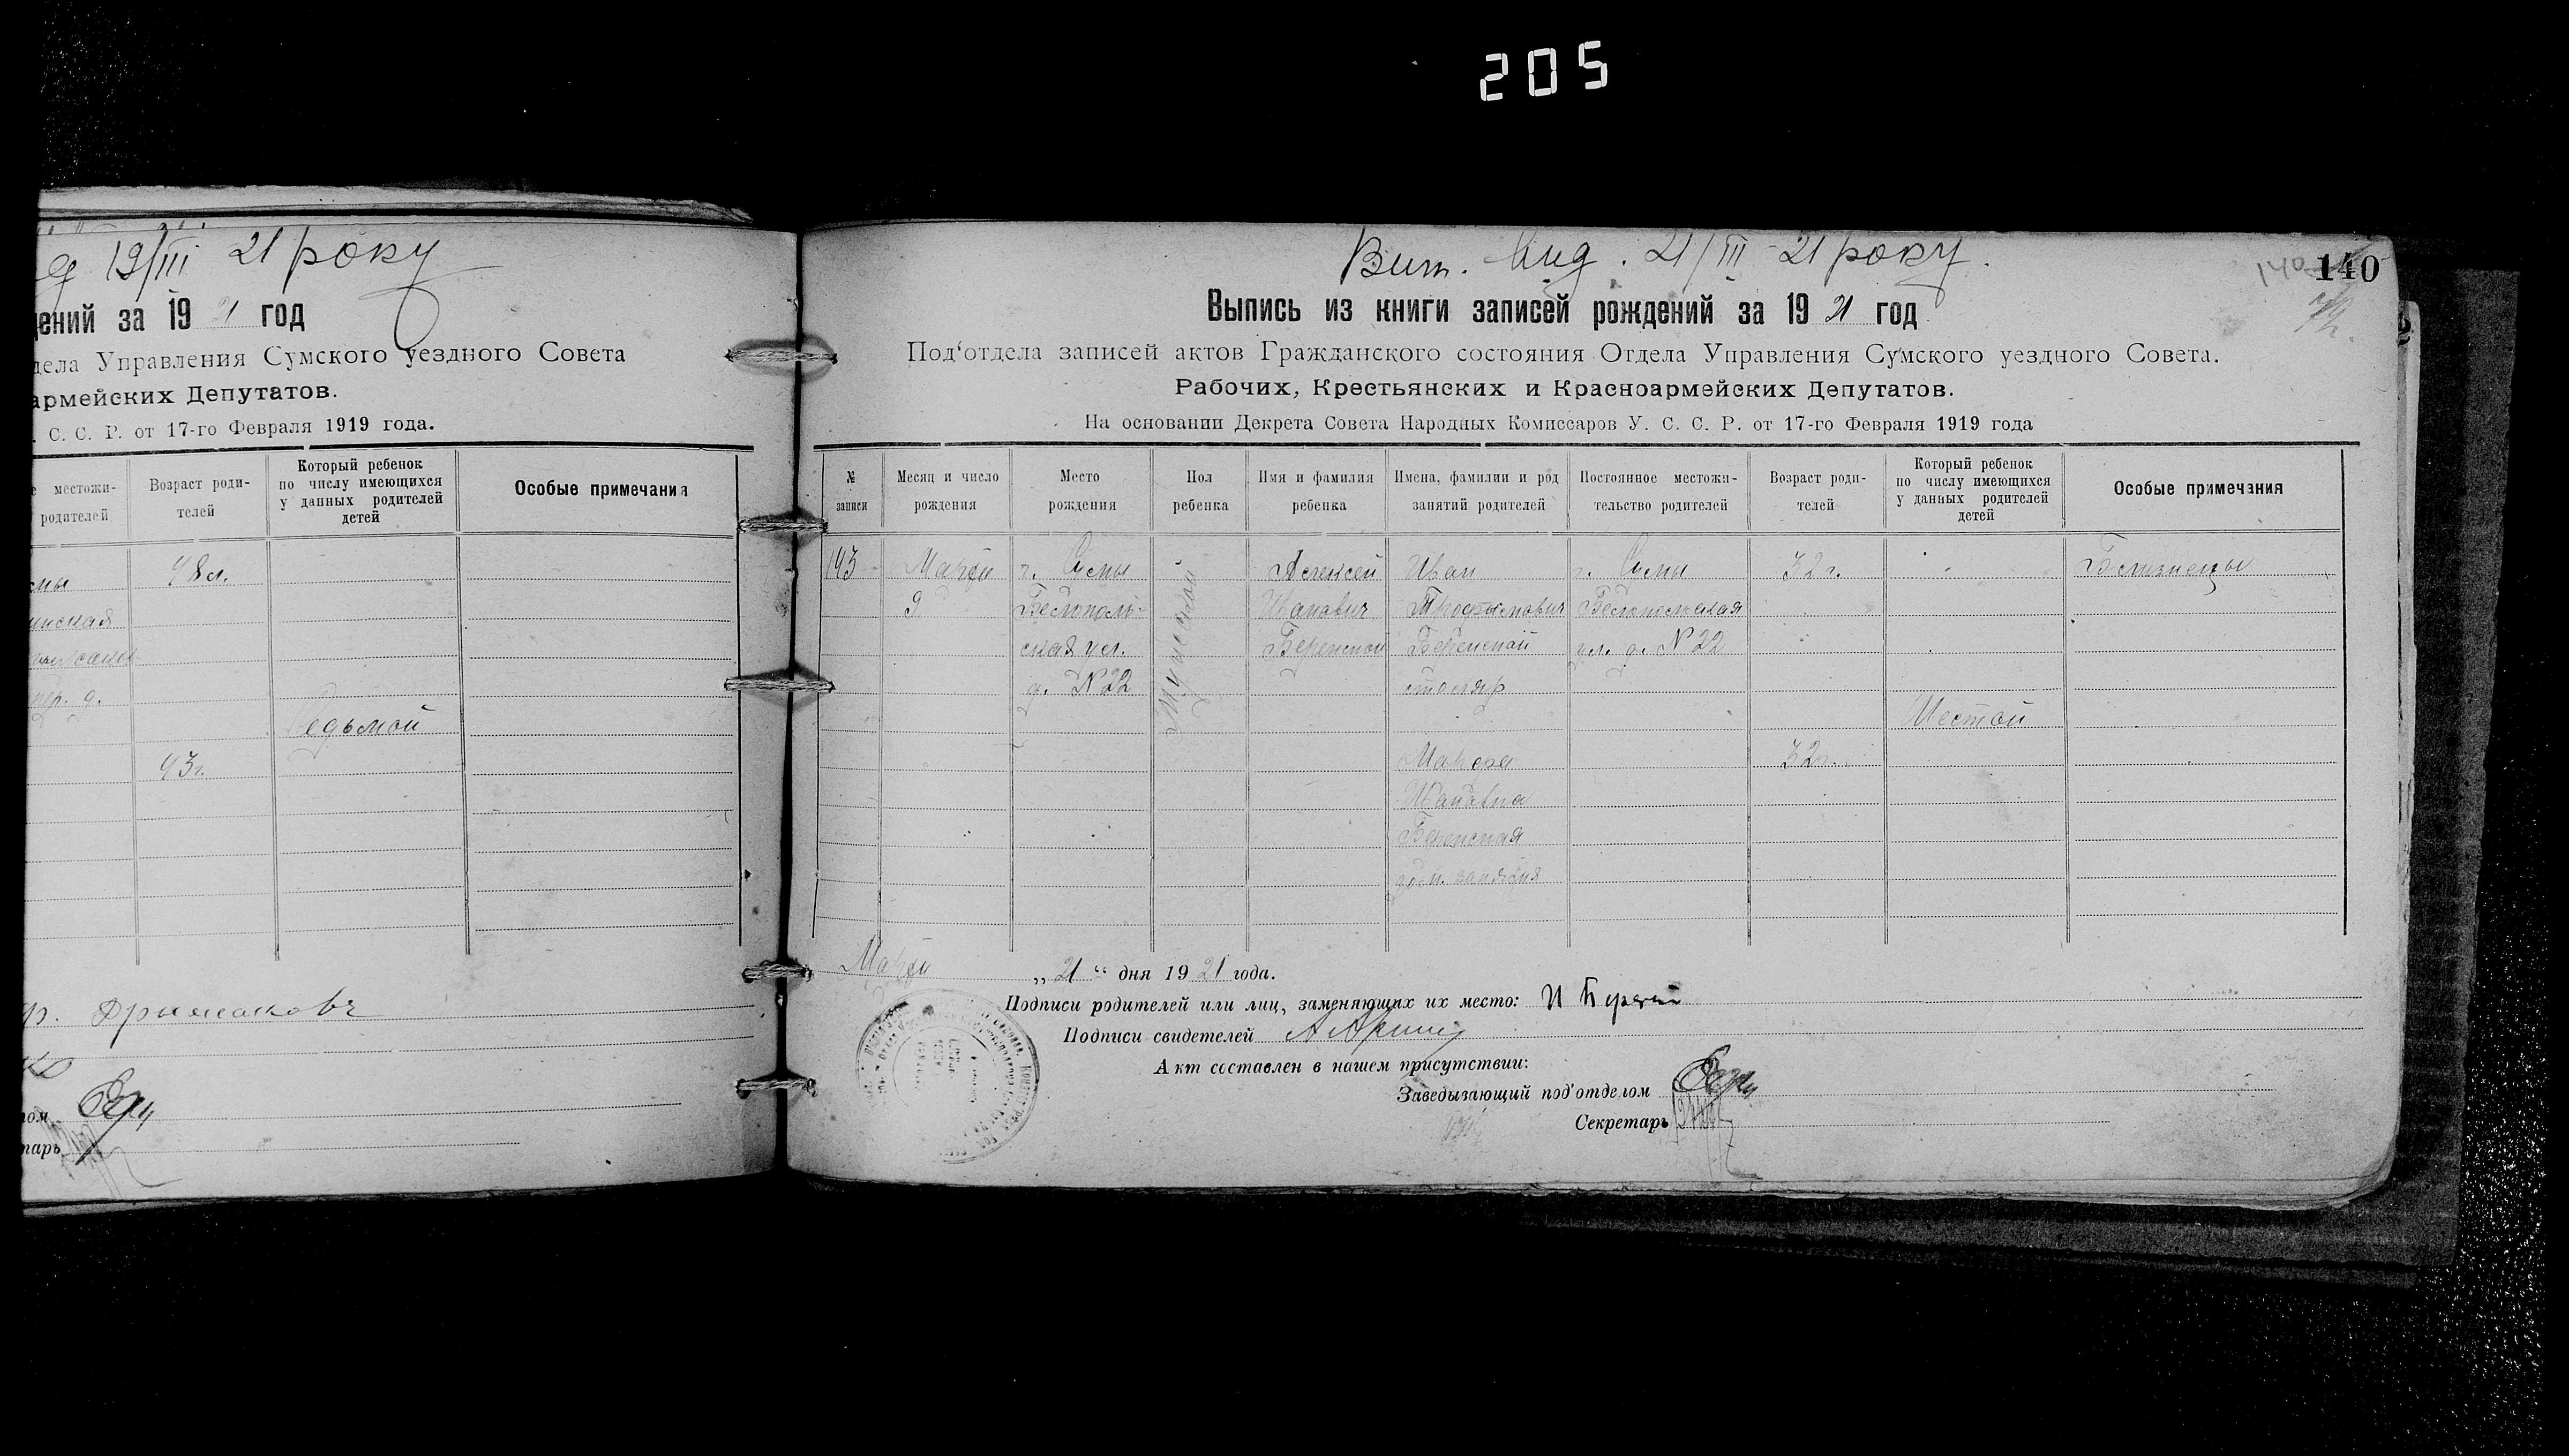 205
19/III 21 року
дений за 1921 год
дела Управления Сумского уездного Совета
армейских Депутатов.
С. С. Р. от 17-го Февраля 1919 года.
местожи-
родителей
Возраст роди-
телей
Который ребенок
по числу имеющихся
у данных родителей
детей
Особые примечания
48 л.
Седьмой
43 г.
тарь
Вит. вид. 21/III 21 року.
140
140
Выпись из книги записей рождений за 1921 год
Под'отдела записей актов Гражданского состояния Отдела Управления Сумского уездного Совета.
Рабочих, Крестьянских и Красноармейских Депутатов.
На основании Декрета Совета Народных Комиссаров У. С. С. Р. от 17-го Февраля 1919 года
№
записи
Месяц и число
рождения
Место
рождения
Пол
ребенка
Имя и фамилия
ребенка
Имена, фамилии и род
занятий родителей
Постоянное местожи-
тельство родителей
Возраст роди-
телей
Который ребенок
по числу имеющихся
у данных родителей
детей
Особые примечания
193
Марта
9
г. Сумы
Белополь-
ская ул.
д. №22
Мужской
Алексей
Иванович
Беренской
Иван
Трофимович
Беренской
столяр
Марфа
Ивановна
Беренская
дом. занятия
г. Сумы
Белопольская
ул. д. №22
32 г.
32 г.
Шестой
Близнецы
Марта „21“ дня 1921 года.
Подписи родителей или лиц, заменяющих их место:
Подписи свидетелей
Акт составлен в нашем присутствии:
Заведывающий под'отделом
Секретарь